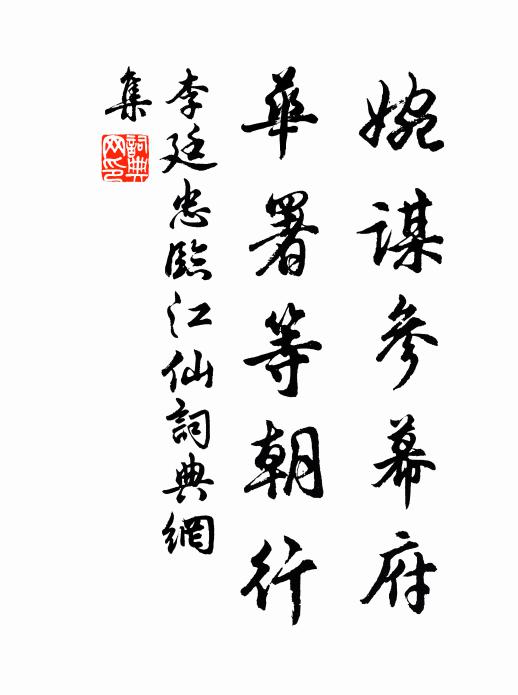 婉謀參幕府
華署等朝行
李廷忠臨江仙詞典網
集
詞典網